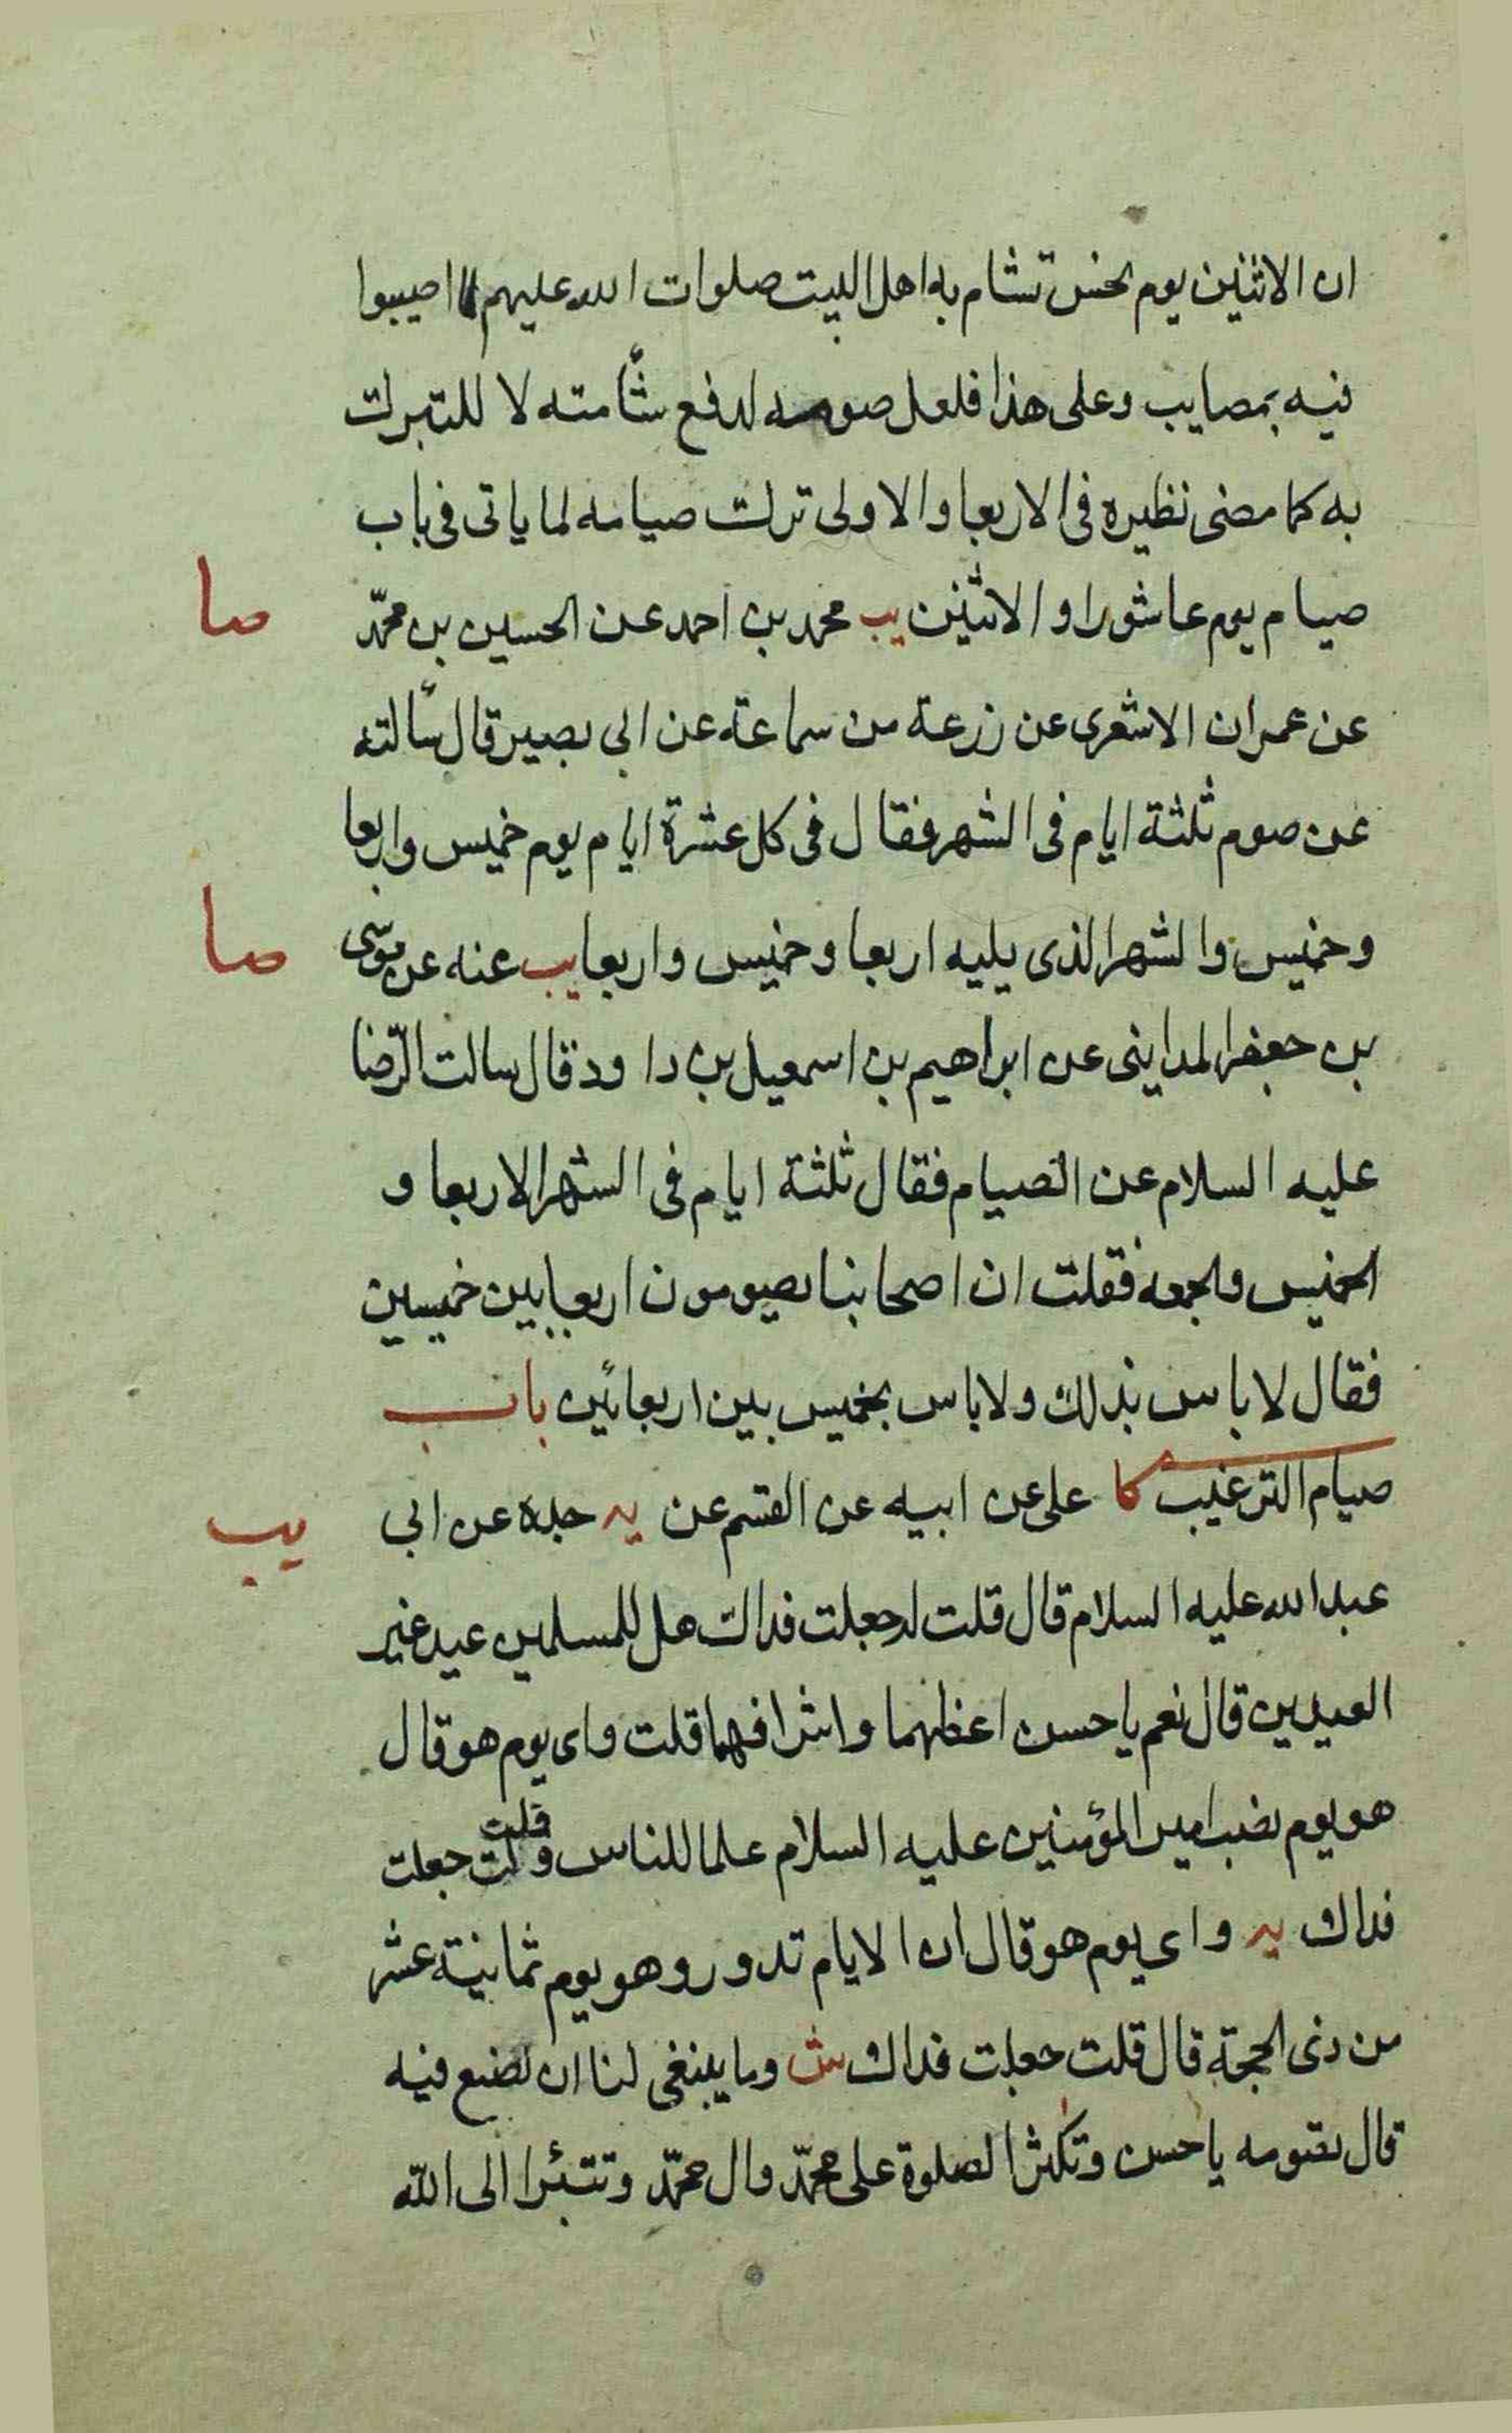 ان الاثنين يوم نحس تشام به اهل البيت صلوات الله عليهم لما اصيبوا
فيه بمصايب وعلى هذا فلعل صومه لدفع شأمته لا للتبرك
به كما مضى نظيره فى الاربعا والاولى ترك صيامه لما ياتى فى باب
صيام يوم عاشورا والاثنين يب محمد بن احمد عن الحسين بن محمّد
صا
عن عمران الاشعرى عن زرعة من سماعة عن ابى بصير قال سألته
عن صوم ثلثة ايام فى الشهر فقال فى كل عشرة ايام يوم خميس واربعا
وخميس والشهر الذى يليه اربعا وخميس واربعا يب عنه عن موسى
صا
بن جعفر المداينى عن ابراهيم بن اسمعيل بن داود قال سالت الرّضا
عليه السلام عن الصيام فقال ثلثة ايام فى الشهر الاربعا و
الخميس والجمعه فقلت ان اصحابنا يصومون اربعا بين خميسين
فقال لا باس بذلك ولا باس بخميس بين اربعائين باب
صيام الترغيب كا على عن ابيه عن القسم عن يه جده عن ابى
يب
عبد الله عليه السلام قال قلت له جعلت فداك هل للمسلمين عيد غير
العيدين قال نعم يا حسن اعظهما واشرافهما قلت واى يوم هو قال
هو يوم نصب امير المؤمنين عليه السلام علما للناس قلت جعلت
قلت
فداك يه واى يوم هو قال ان الايام تدور وهو يوم ثمانية عشر
من ذى الحجة قال قلت جعلت فداك ش وما ينبغى لنا ان نصنع فيه
قال تصومه يا حسن وتكثر الصلوة على محمّد وال محمّد وتتبئرا الى الله